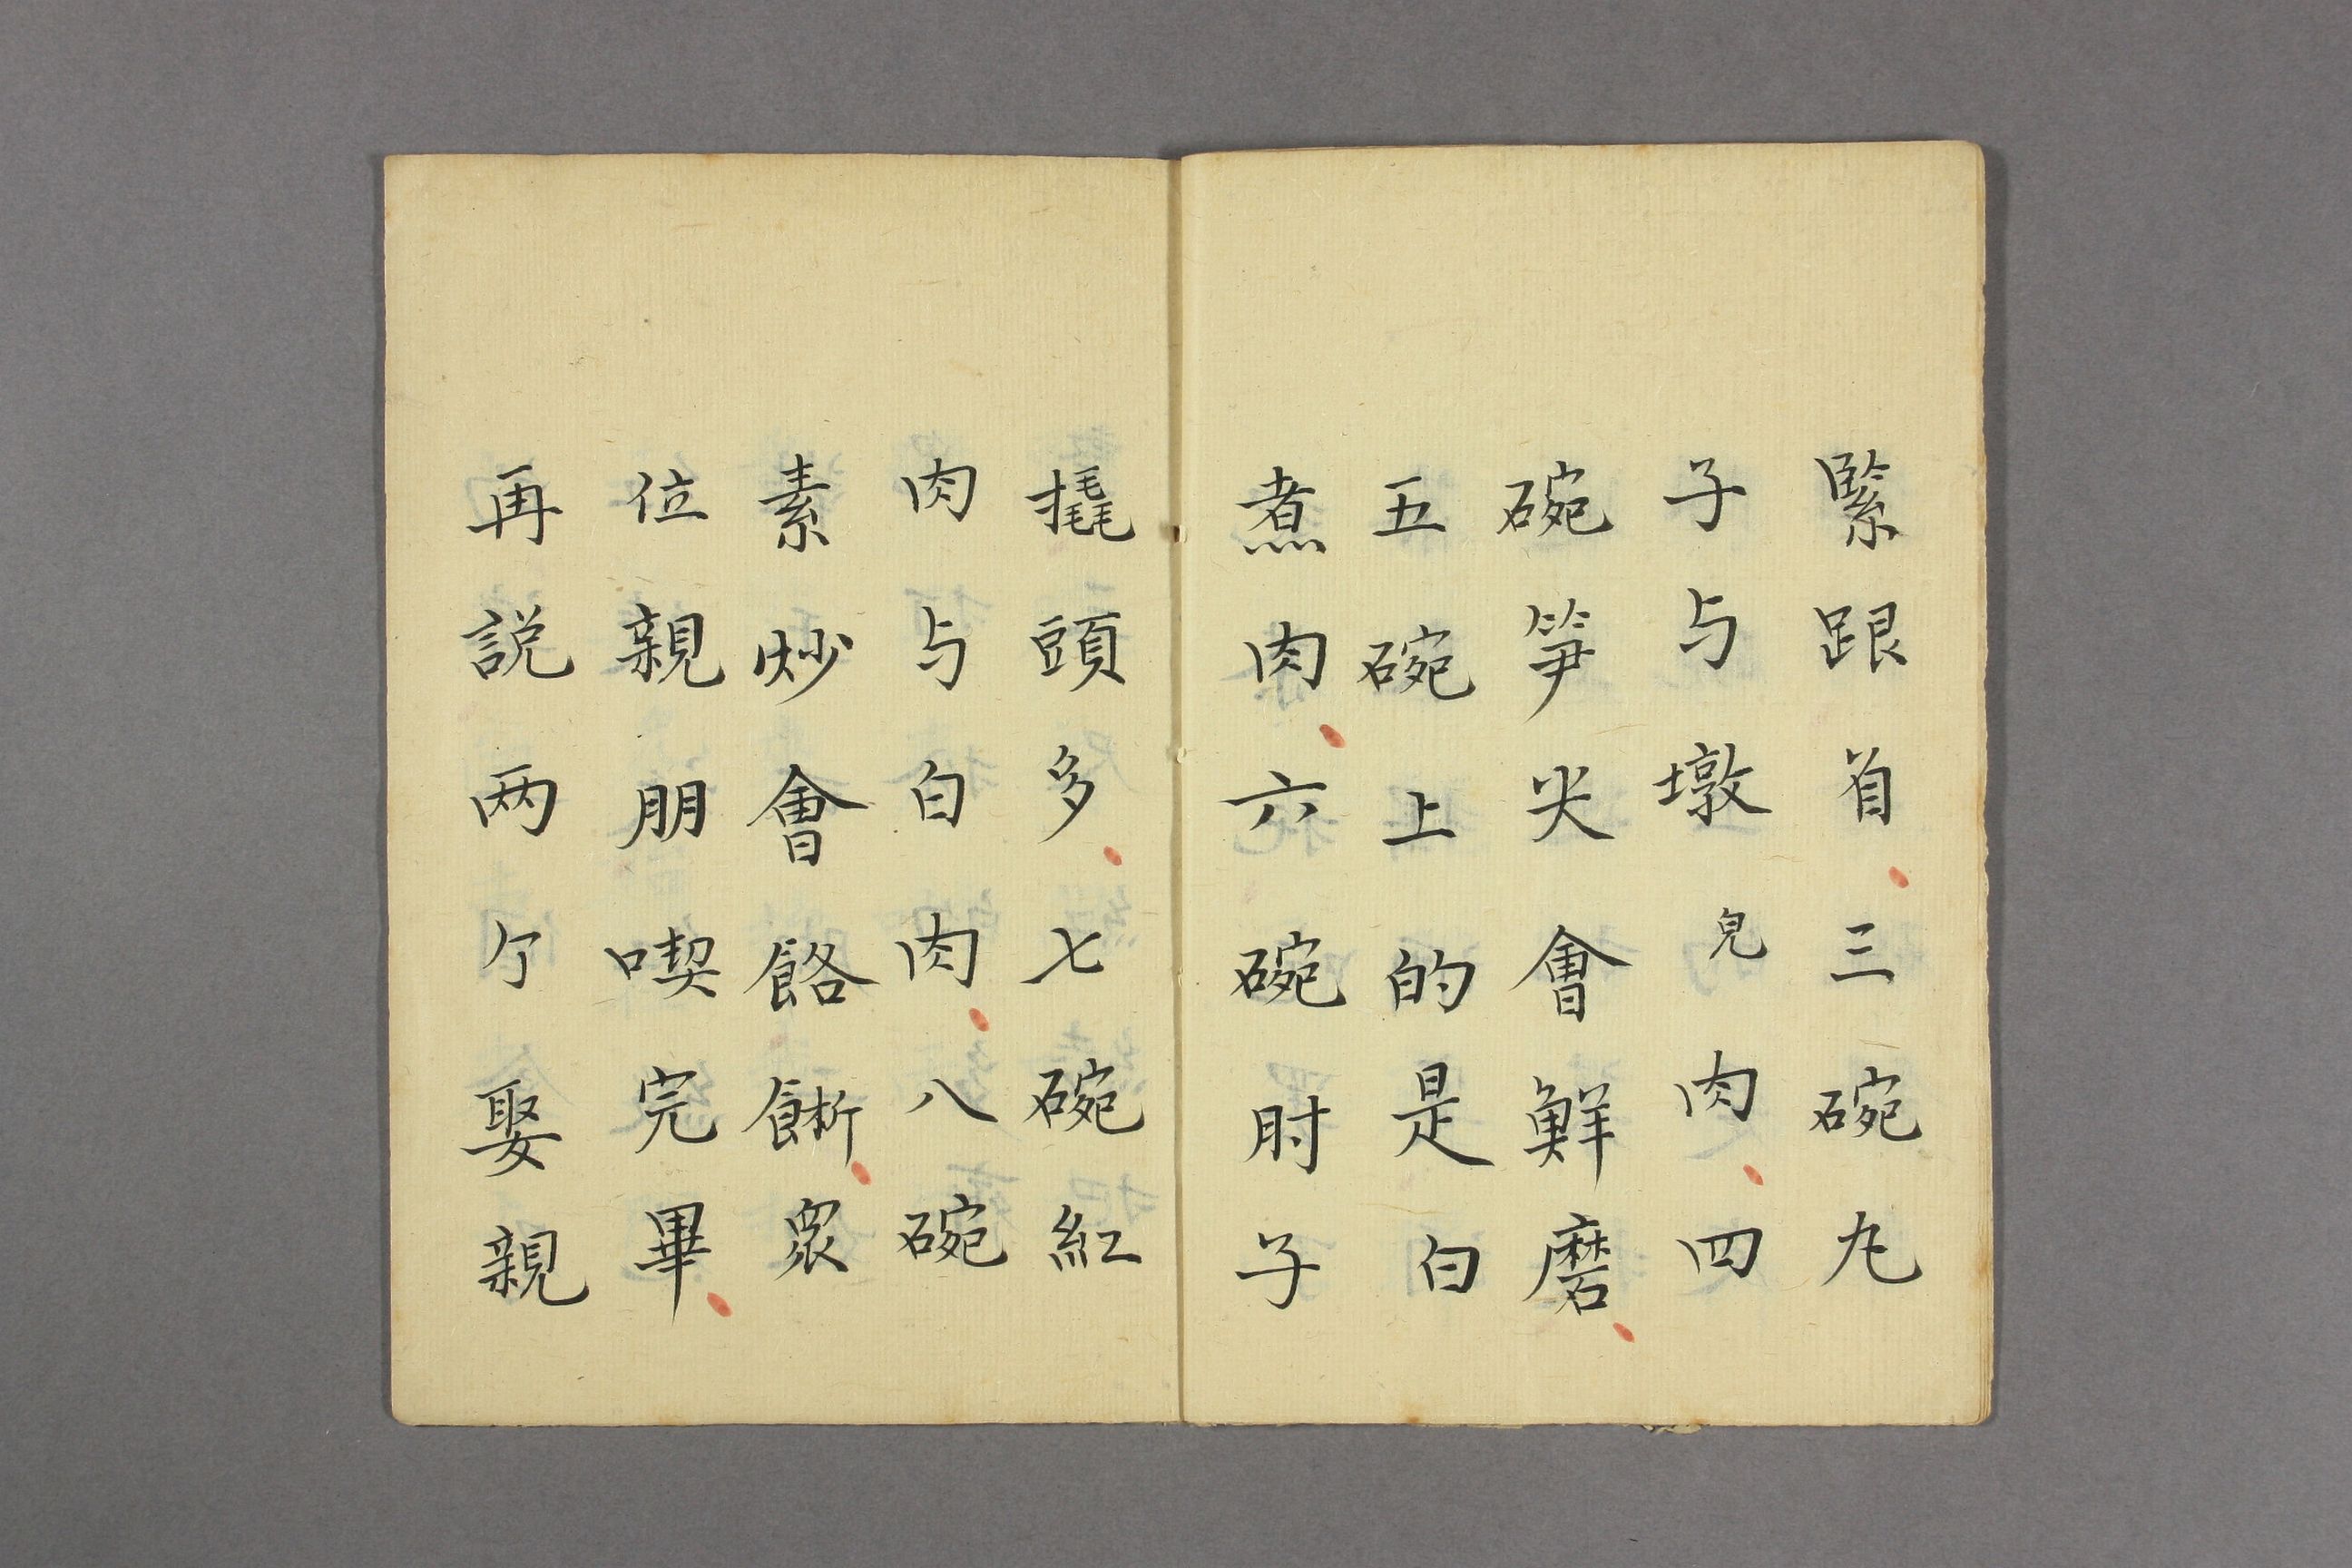 緊跟首三碗丸
子与墩児肉四
碗笋尖會鮮磨
五碗上的是白
煮肉六碗肘子
撬頭多七碗紅
肉与白肉八碗
素炒會餎餷衆
位親朋喫完畢
再説两个娶親